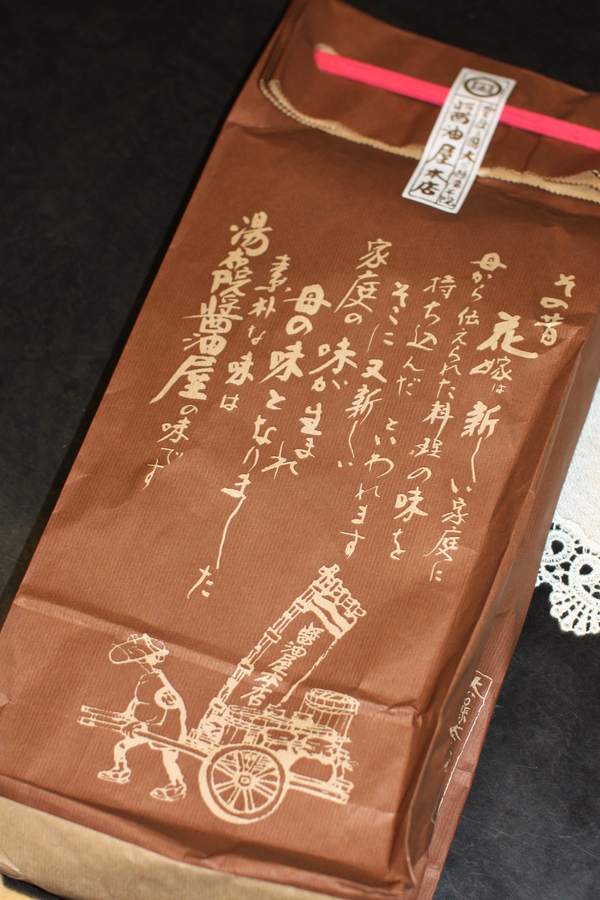 その昔
花嫁は新しい家庭に
母から伝えられた料理の味を
持ち込んだといわれます
そこに又新しい
家庭の味が生まれ
母の味となりました
素朴な味は
湯浅醤油屋の味です
醤油屋本店
醤油屋本店